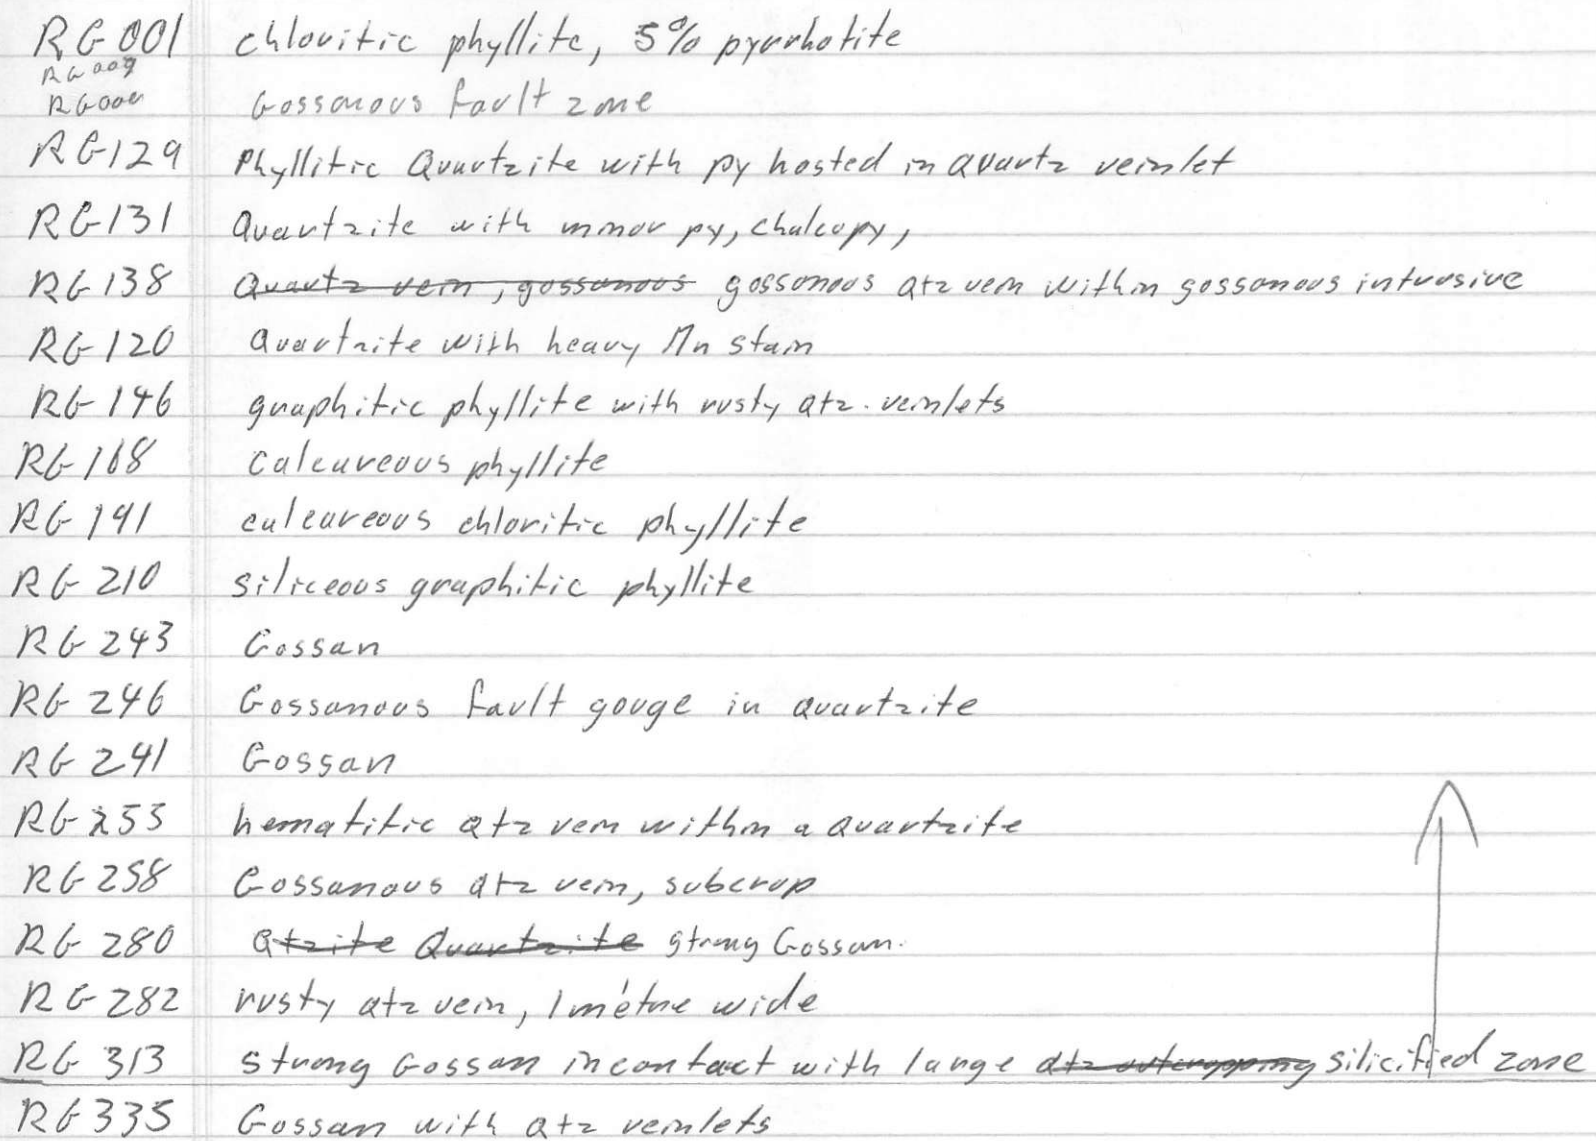 RG001 chloritic phyllite, 5% pyrrhotite
RG009
Gossanous fault zone
RG129 Phyllitic Quartzite with py hosted in Quartz veinlet
RG131 Quartzite with minor py, chalcopy,
RG138 Quartz vein, gossanous gossanous qtz vein within gossanous intrusive
RG120 Quartzite with heavy Mn stain
RG146 graphitic phyllite with rusty qtz. veinlets
RG168 Calcareous phyllite
RG191 calcareous chloritic phyllite
RG210 siliceous graphitic phyllite
RG243 Gossan
RG246 Gossanous fault gouge in quartzite
RG241 Gossan
RG253 hematitic qtz vein within a Quartzite
RG258 Gossanous qtz vein, subcrop
RG280 Qtzite Quartzite strong Gossan.
RG282 rusty qtz vein, 1 métre wide
RG313 strong Gossan in contact with large qtz outcropping silicified zone
RG335 Gossan with qtz veinlets